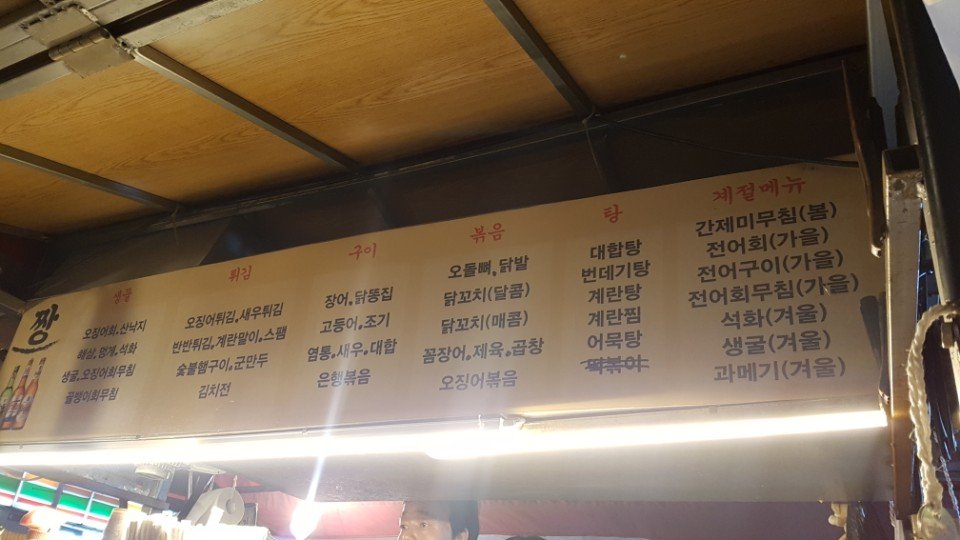 짱
생물
오징어회.산낙지
해삼.멍게.석화
생굴.오징어회무침
골뱅이회무침
튀김
오징어튀김.새우튀김
반반튀김.계란말이.스팸
숯불햄구이.군만두
김치전
구이
장어.닭똥집
고등어.조기
염통.새우.대합
은행볶음
볶음
오돌뼈.닭발
닭꼬치(달콤)
닭꼬치(매콤)
꼼장어.제육.곱창
오징어볶음
탕
대합탕
번데기탕
계란탕
계란찜
어묵탕
떡볶이
계절메뉴
간제미무침(봄)
전어회(가을)
전어구이(가을)
전어회무침(가을)
석화(겨울)
생굴(겨울)
과메기(겨울)